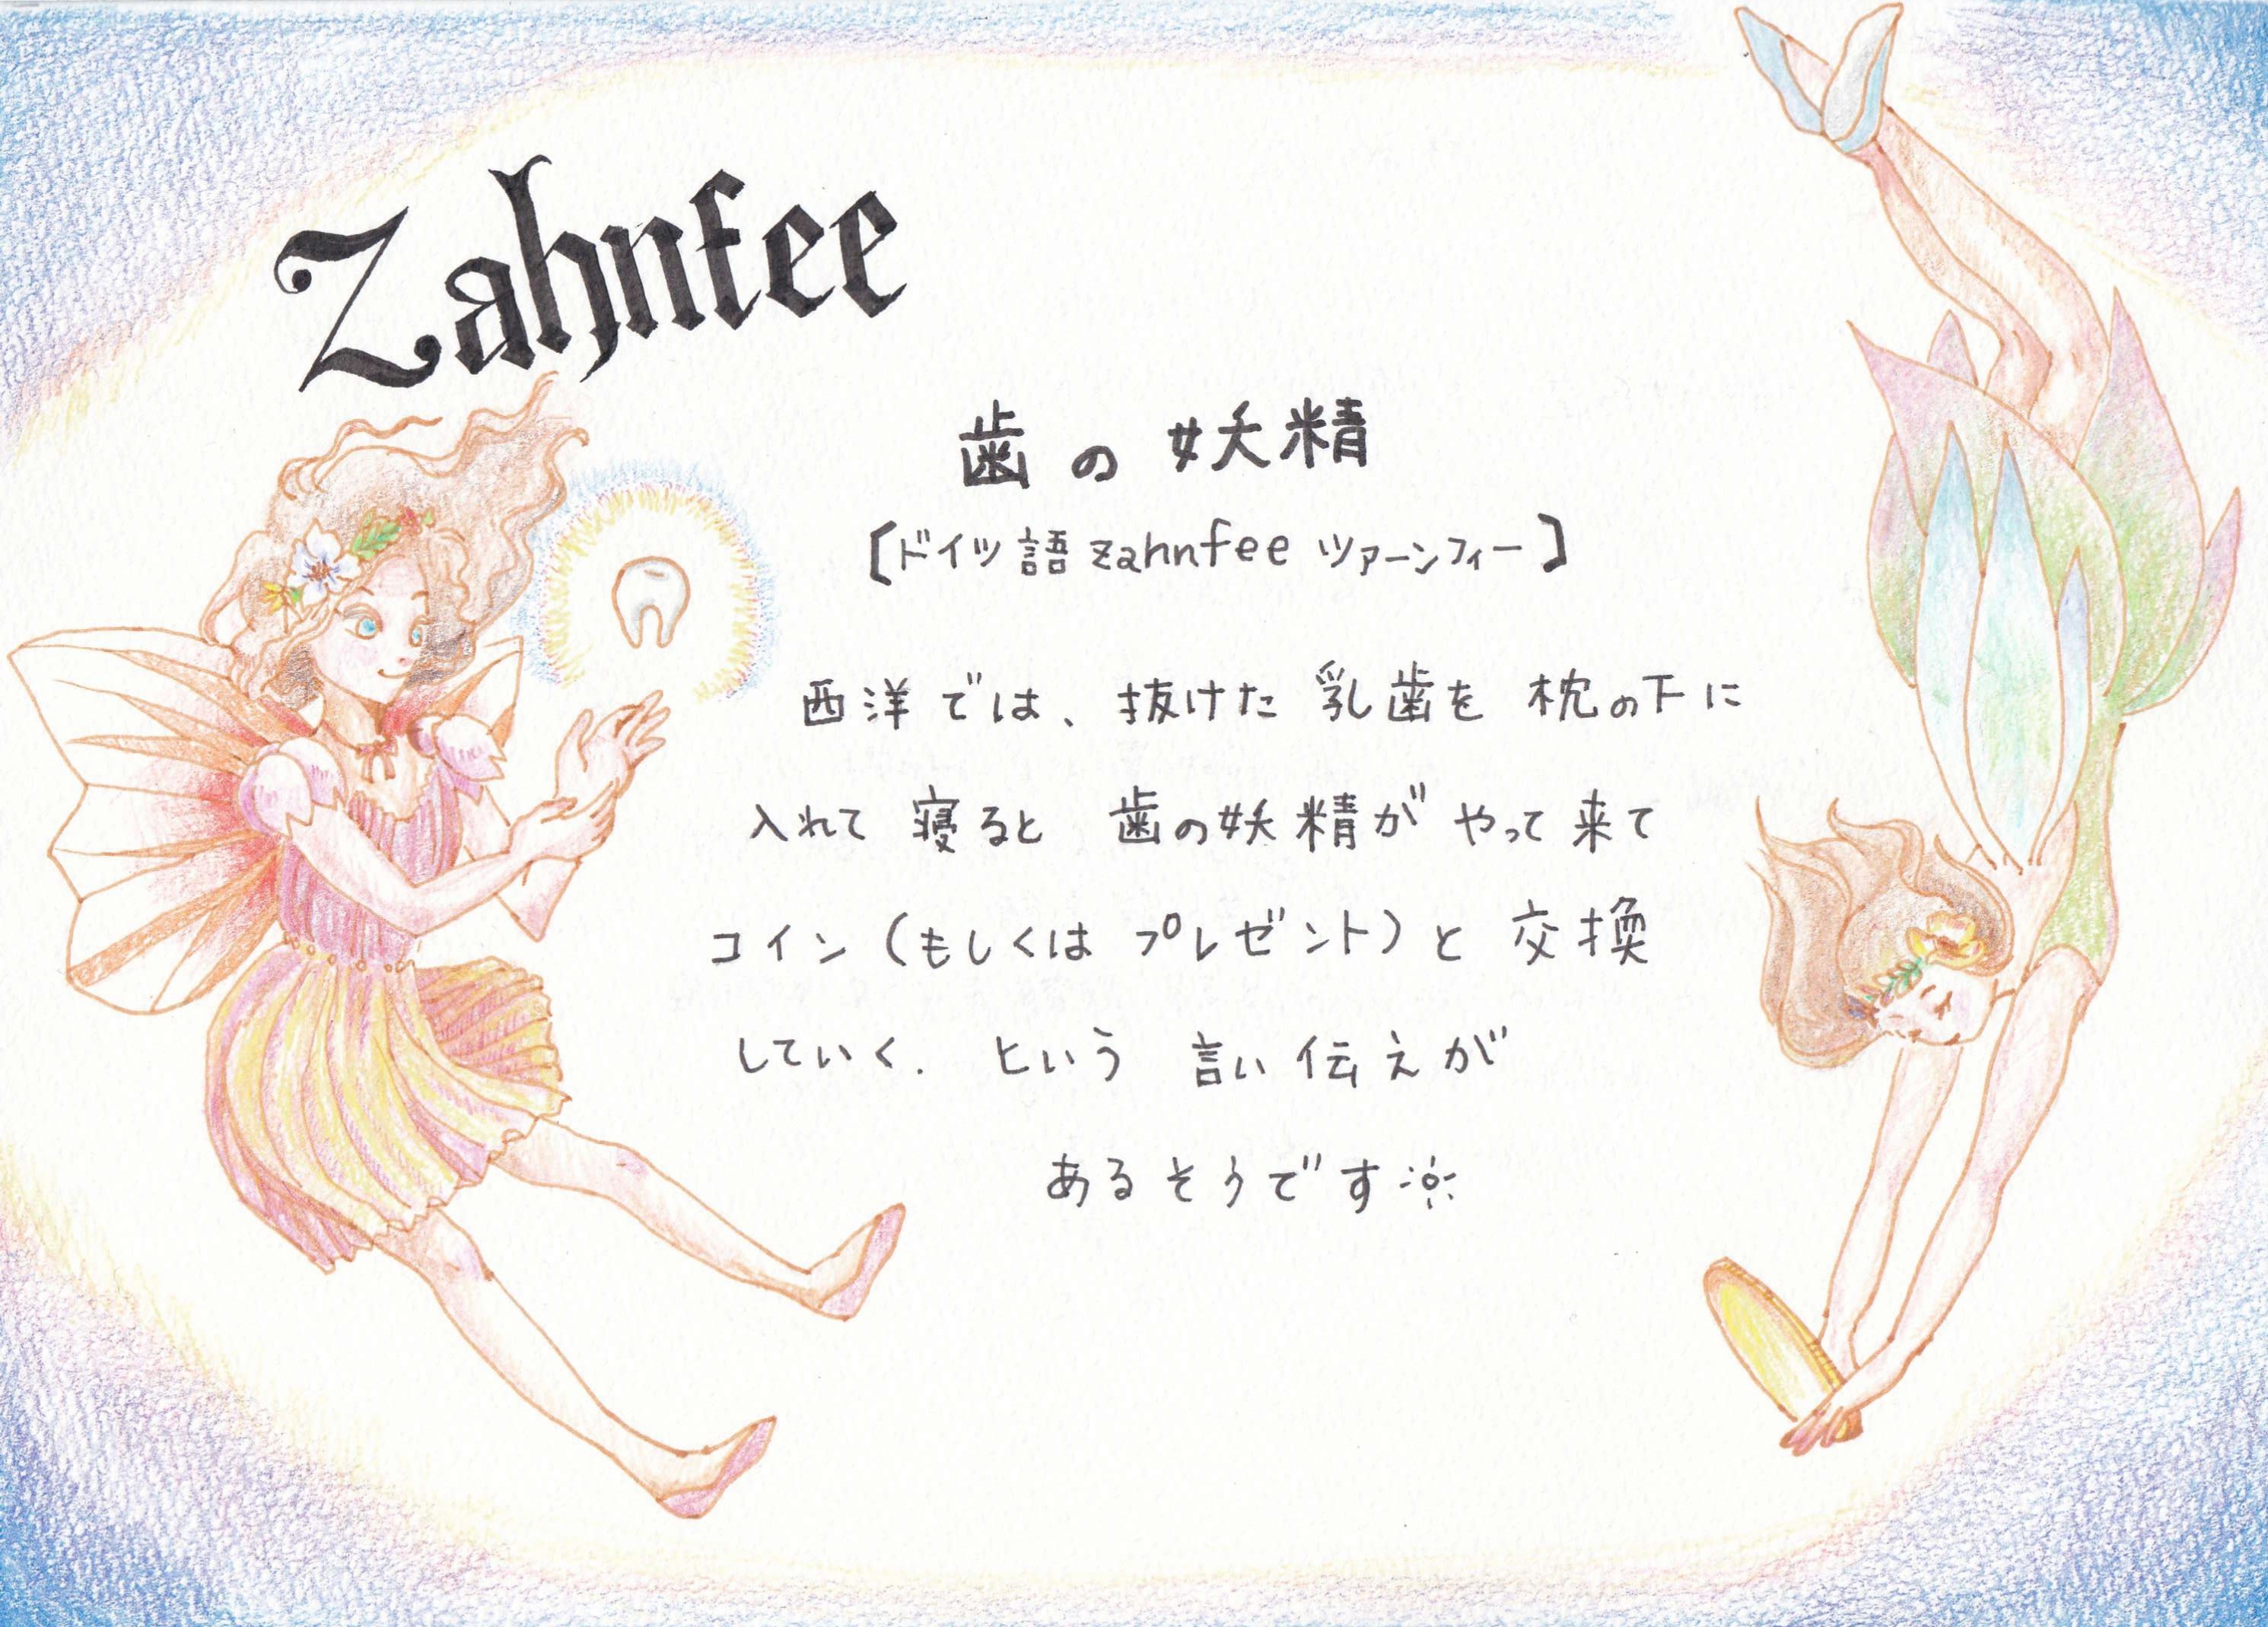 Zahnfee
歯の妖精
[ドイツ語 zahnfee ツァーンフィー]
西洋では、抜けた乳歯を枕の下に
入れて寝ると歯の妖精がやって来て
コイン(もしくはプレゼント)と交換
していく. という言い伝えが
あるそうです